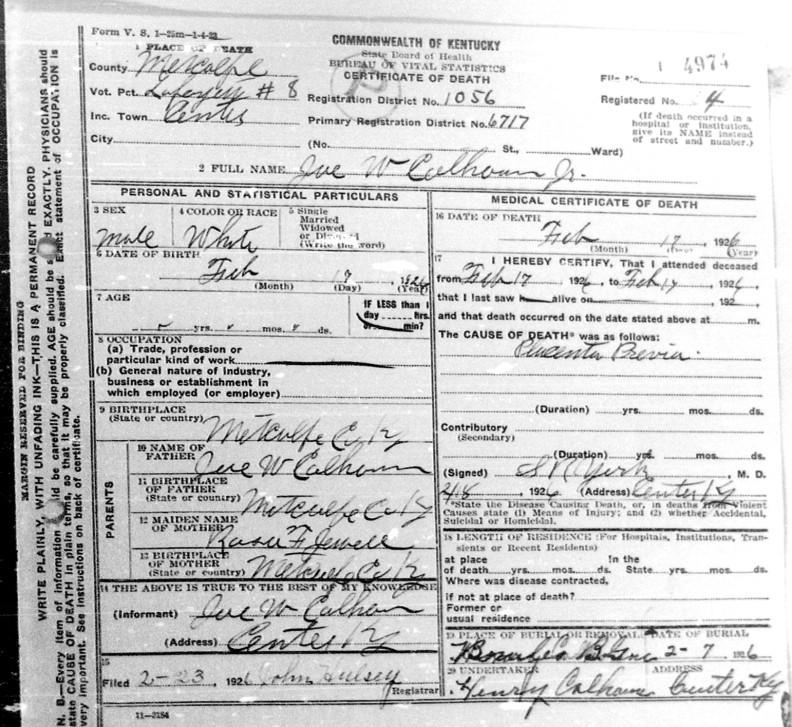 Form V. S. 1-25m-1-4-22
COMMONWEALTH OF KENTUCKY
State Board of Health
BUREAU OF VITAL STATISTICS
CERTIFICATE OF DEATH
File No. 4974
Registered No. 4
(If death occurred in a hospital or institution, give its NAME instead of street and number.)
1 PLACE OF DEATH
County Metcalfe
Vot. Pct. # 8
Inc. Town Center
City
Registration District No. 1056
Primary Registration District No. 6717
(No. St., Ward)
2 FULL NAME Joe W Calhoun Jr.
PERSONAL AND STATISTICAL PARTICULARS
3 SEX
male
4 COLOR OR RACE
White
5 Single
Married
Widowed
or Divorced
(Write the word)
6 DATE OF BIRTH
Feb 17 1926
(Month) (Day) (Year)
7 AGE
yrs. mos. ds.
IF LESS than 1
day hrs.
or min?
8 OCCUPATION
(a) Trade, profession or
particular kind of work
(b) General nature of industry,
business or establishment in
which employed (or employer)
9 BIRTHPLACE
(State or country) Metcalfe Co Ky
PARENTS
10 NAME OF
FATHER Joe W Calhoun
11 BIRTHPLACE
OF FATHER
(State or country) Metcalfe Co Ky
12 MAIDEN NAME
OF MOTHER F Jewell
13 BIRTHPLACE
OF MOTHER
(State or country) Metcalfe Co Ky
14 THE ABOVE IS TRUE TO THE BEST OF MY KNOWLEDGE
(Informant) Joe W Calhoun
(Address) Center Ky
15
Filed 2-23, 1926 John Hulsey
Registrar
11-3184
MEDICAL CERTIFICATE OF DEATH
16 DATE OF DEATH
Feb 17 1926
(Month) (Day) (Year)
17 I HEREBY CERTIFY, That I attended deceased
from Feb 17 1926, to Feb 17 1926,
that I last saw h alive on 192
and that death occurred on the date stated above at m.
The CAUSE OF DEATH* was as follows:
Placenta Previa.
(Duration) yrs. mos. ds.
Contributory
(Secondary)
(Duration) yrs. mos. ds.
(Signed) S R York, M. D.
2/18, 1926 (Address) Center Ky
*State the Disease Causing Death, or, in deaths from Violent
Causes state (1) Means of Injury; and (2) whether Accidental,
Suicidal or Homicidal.
18 LENGTH OF RESIDENCE (For Hospitals, Institutions, Transients or Recent Residents)
at place In the
of death yrs. mos. ds. State yrs. mos. ds.
Where was disease contracted,
if not at place of death?
Former or
usual residence
19 PLACE OF BURIAL OR REMOVAL DATE OF BURIAL
2-7 1926
20 UNDERTAKER ADDRESS
Henry Calhoun Center Ky
MARGIN RESERVED FOR BINDING
WRITE PLAINLY, WITH UNFADING INK—THIS IS A PERMANENT RECORD
N. B.—Every item of information should be carefully supplied. AGE should be stated EXACTLY. PHYSICIANS should
state CAUSE OF DEATH in plain terms, so that it may be properly classified. Exact statement of OCCUPATION is
very important. See instructions on back of certificate.